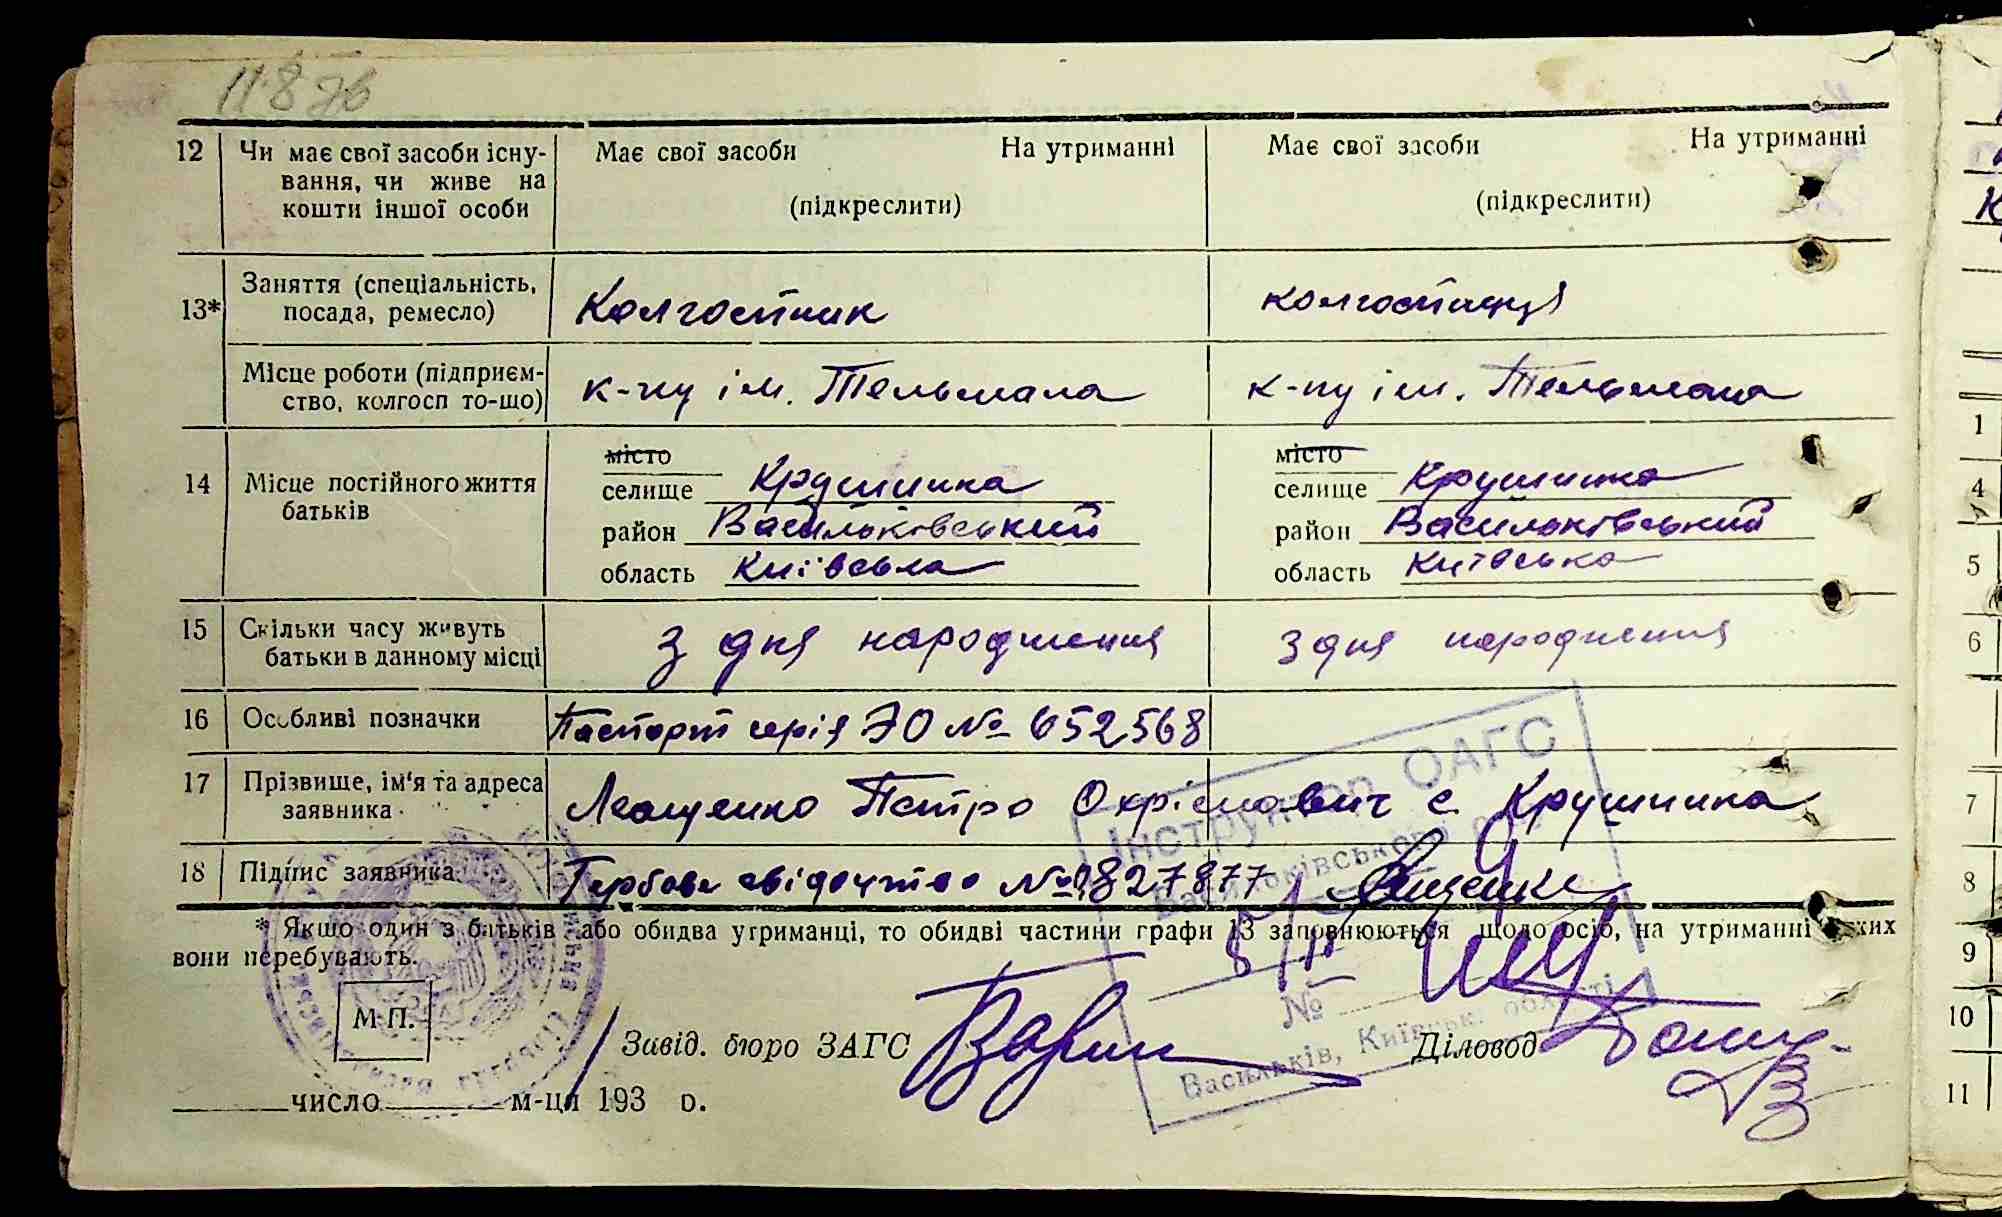 11876
12 Чи має свої засоби існу- Має свої засоби На утриманні Має свої засоби На утриманні
вання, чи живе на
кошти іншої особи (підкреслити) (підкреслити)
13* Заняття (спеціальність,
посада, ремесло) Колгоспник колгоспниця
Місце роботи (підприєм-
ство, колгосп то-що) к-пу ім. Тельмана к-пу ім. Тельмана
14 Місце постійного життя
батьків
місто місто
селище Крушинка селище Крушинка
район Васильківський район Васильківський
область Київська область Київська
15 Скільки часу живуть
батьки в данному місці З дня народження З дня народження
16 Особливі позначки Паспорт серія ЭО № 652568
17 Прізвище, ім'я та адреса
заявника Леащенко Петро Охрімович с Крушинка
18 Підпис заявника Гербове свідоцтво № 827877
* Якщо один з батьків або обидва утриманці, то обидві частини графи 13 заповнюються щодо осіб, на утриманні яких
вони перебувають.
Інструктор ОАГС
Васильківського
№
Васильків, Київськ. області
М.П.
Завід. бюро ЗАГС Діловод
число м-ця 193 о.
1
4
5
6
7
8
9
10
11